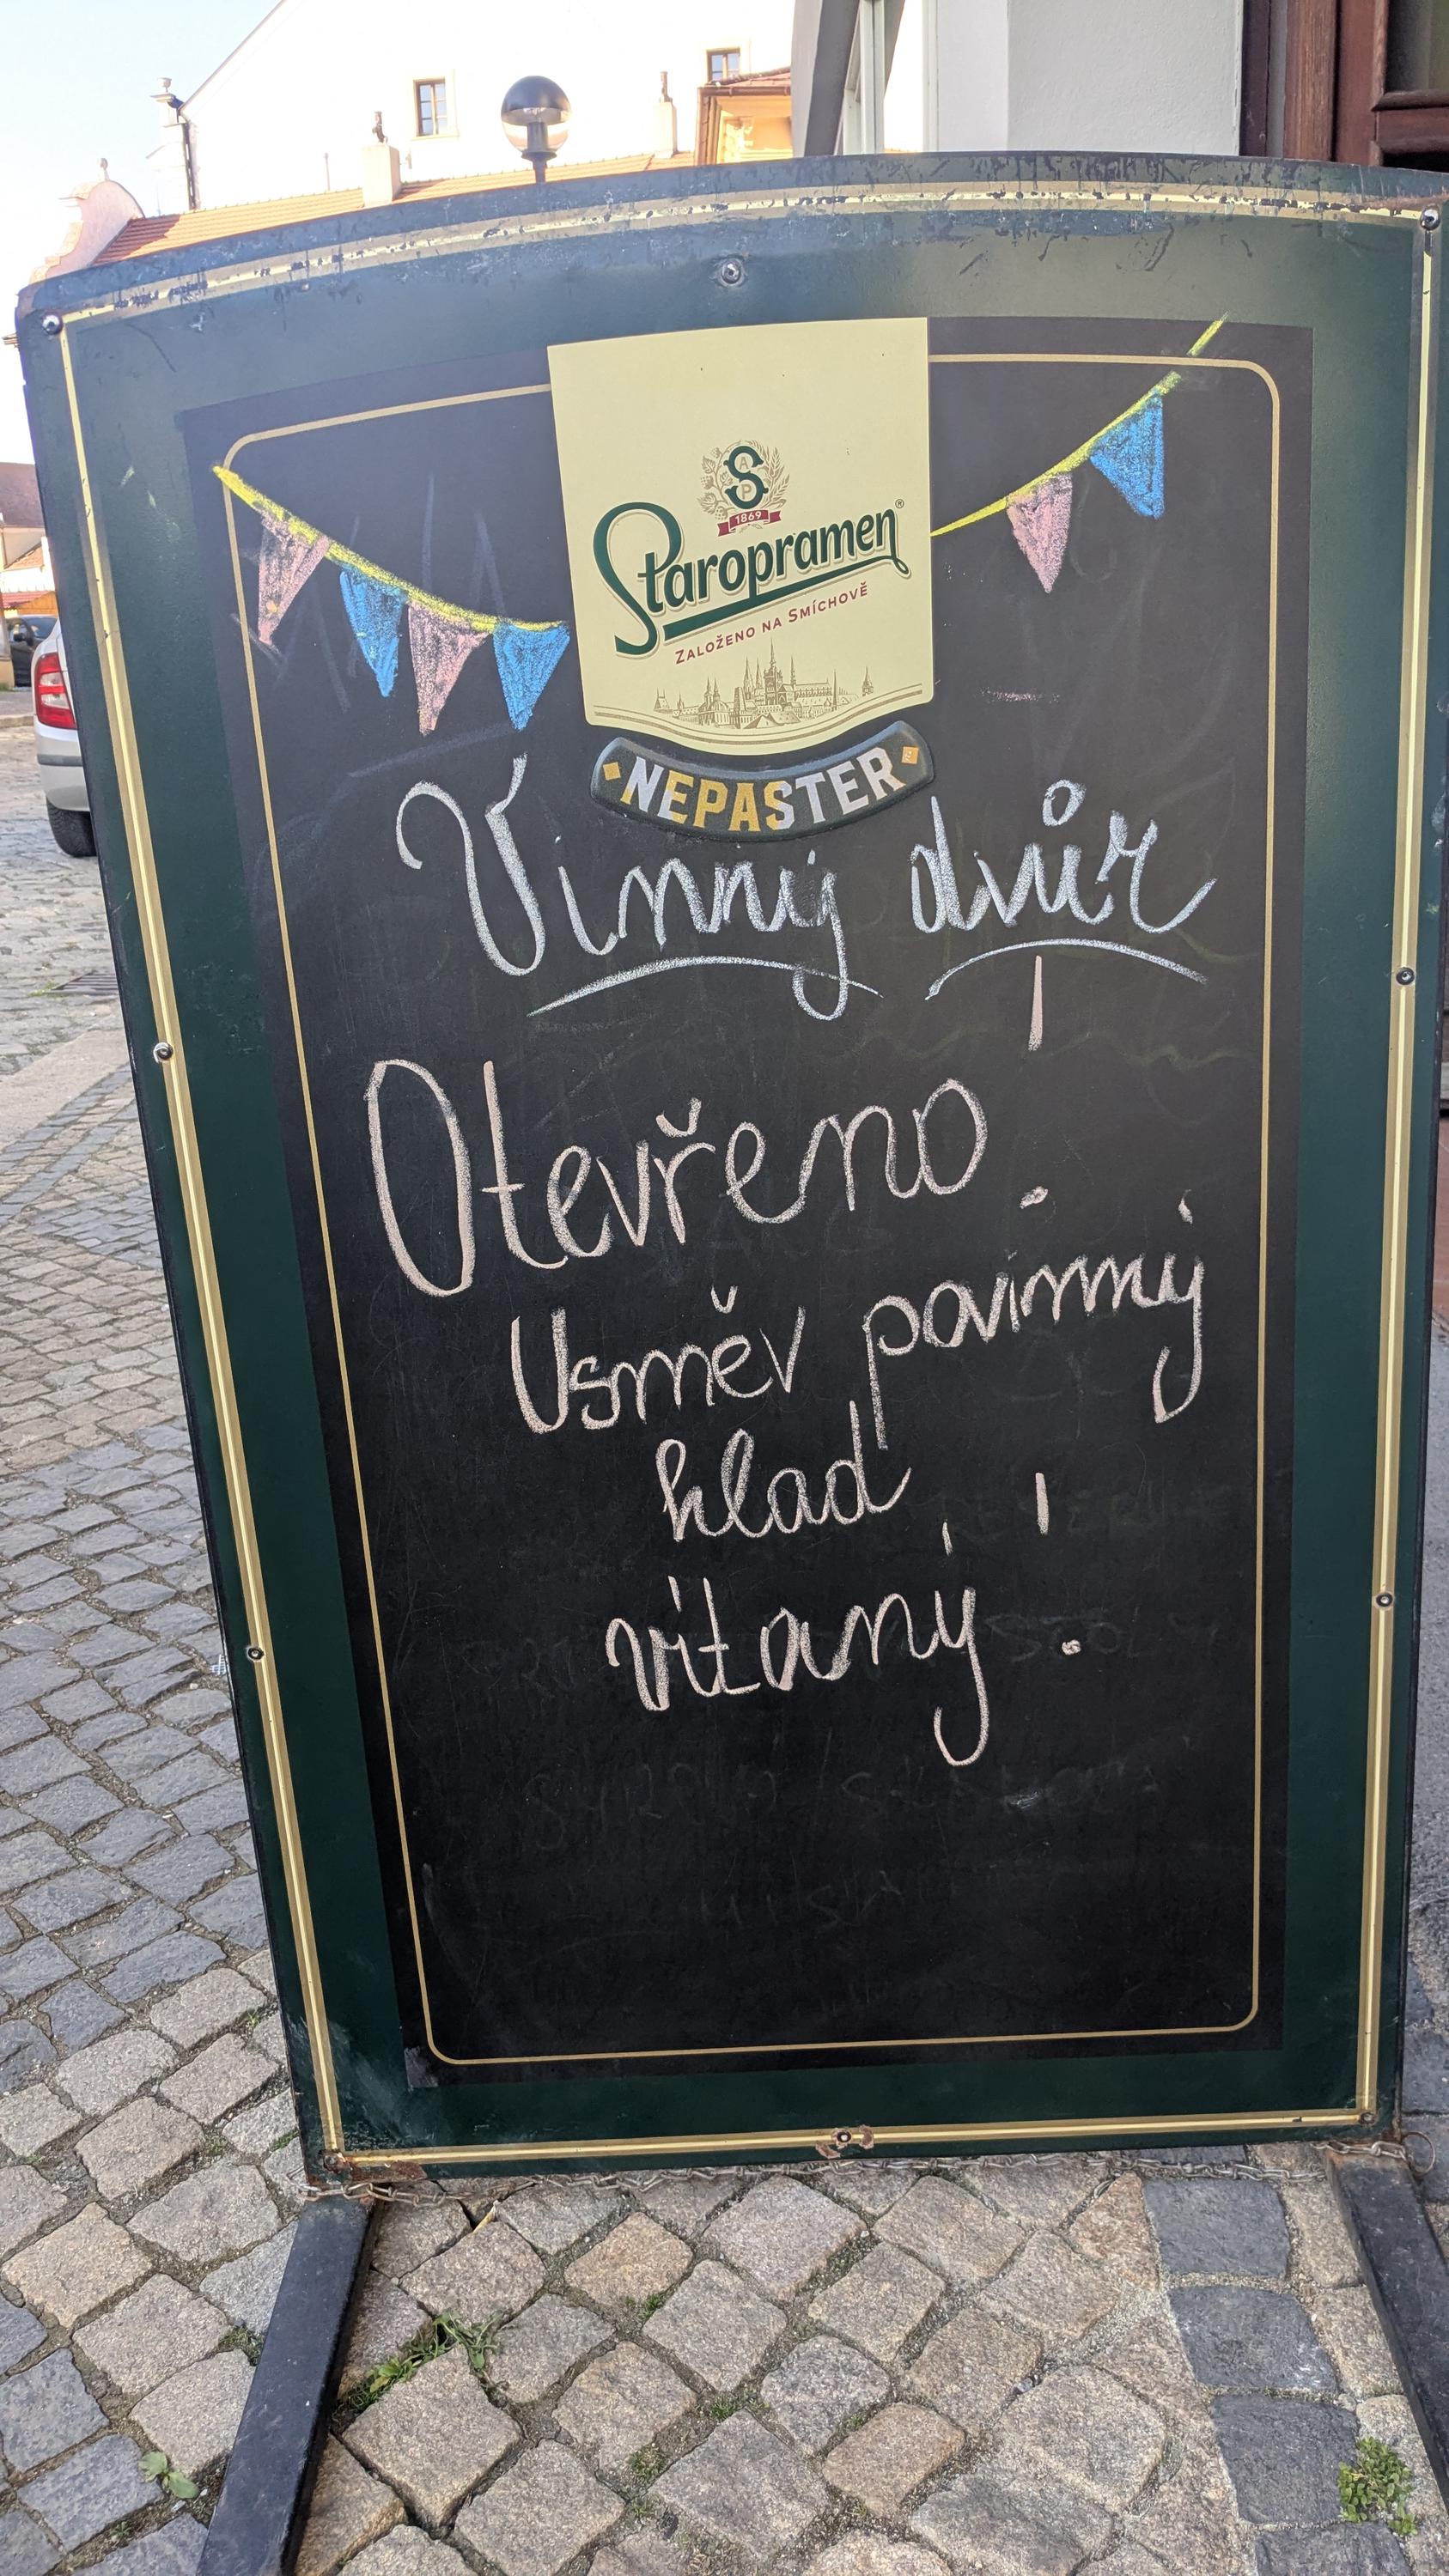 S
1869
Staropramen®
ZALOŽENO NA SMÍCHOVĚ
NEPASTER
Vinný dvůr
Otevřeno!
Usměv povinný
hlad
vítaný!